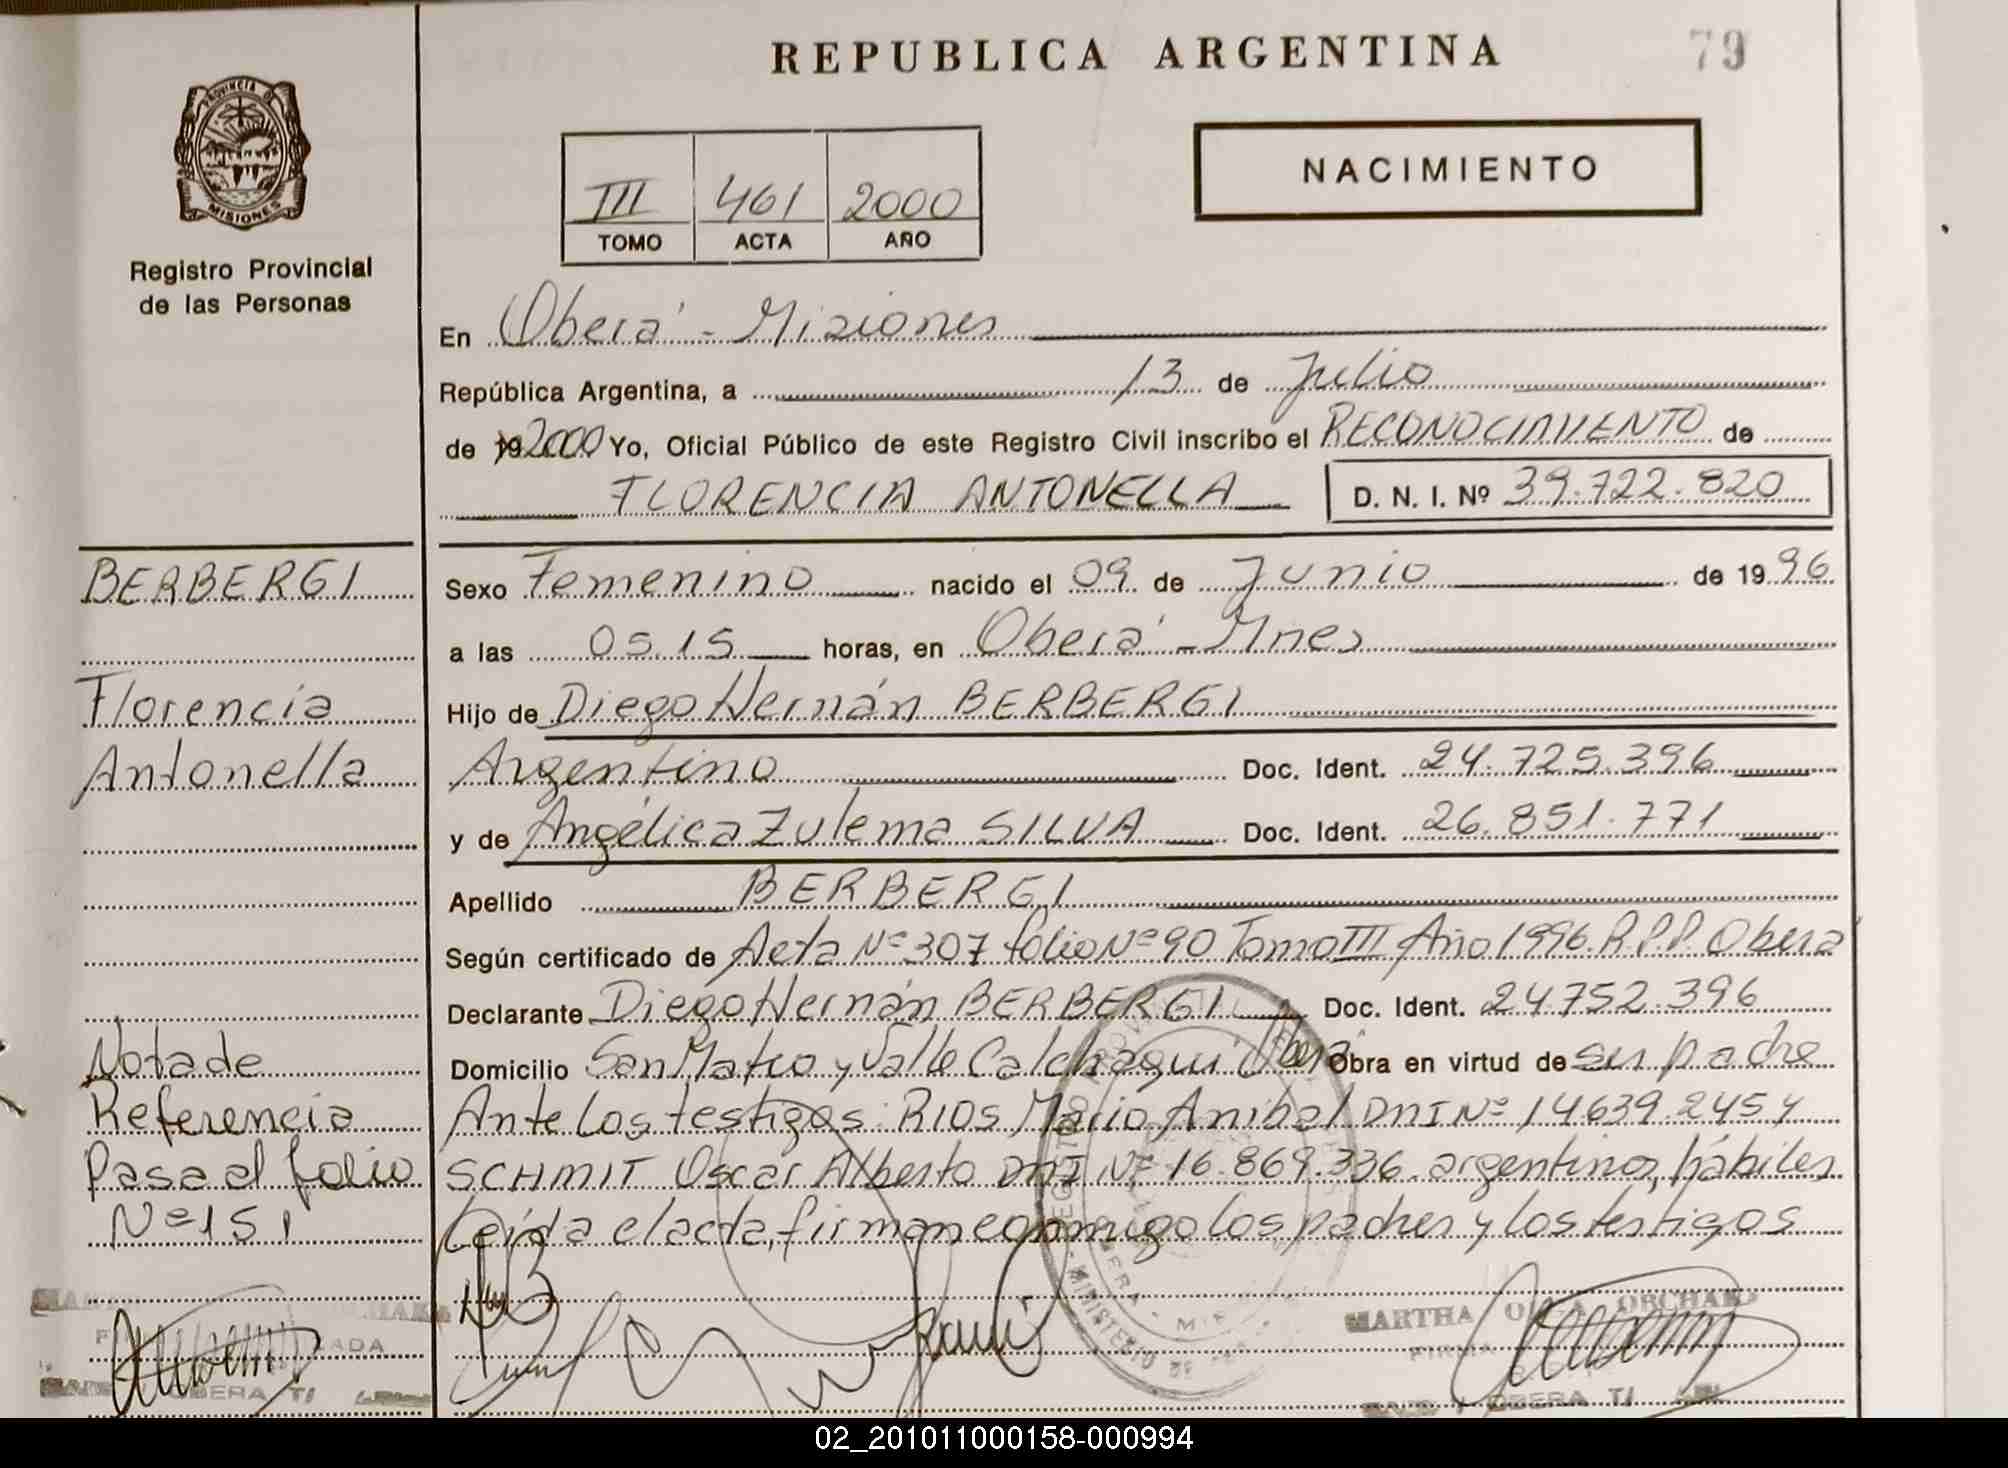 REPUBLICA ARGENTINA
79
PROVINCIA DE
MISIONES
Registro Provincial
de las Personas
III 461 2000
TOMO ACTA AÑO
NACIMIENTO
En Oberá - Misiones
República Argentina, a 13 de Julio
de 19 2000 Yo, Oficial Público de este Registro Civil inscribo el RECONOCIMIENTO de
FLORENCIA ANTONELLA D. N. I. Nº 39.722.820
BERBERGI
Florencia
Antonella
Sexo Femenino nacido el 09 de Junio de 1996
a las 05.15 horas, en Oberá - Mnes
Hijo de Diego Hernán BERBERGI
Argentino Doc. Ident. 24.725.396
y de Angélica Zulema SILVA Doc. Ident. 26.851.771
Apellido BERBERGI
Según certificado de Acta Nº 307 folio Nº 90 Tomo III Año 1996. R.P.P. Obera
Declarante Diego Hernán BERBERGI Doc. Ident. 24.752.396
Domicilio San Mateo y Valle Calchaqui Obera Obra en virtud de ser padre
Ante los testigos: RIOS Mario Anibal DNI Nº 14639.245 y
SCHMIT Oscar Alberto DNI Nº 16.869.336. argentinos, hábiles
Leída el acta, firman conmigo los padres y los testigos
Nota de
Referencia
Pasa al folio
Nº 151
MARTHA OLGA ORCHAKO
FIRMA
OBERA
02_201011000158-000994